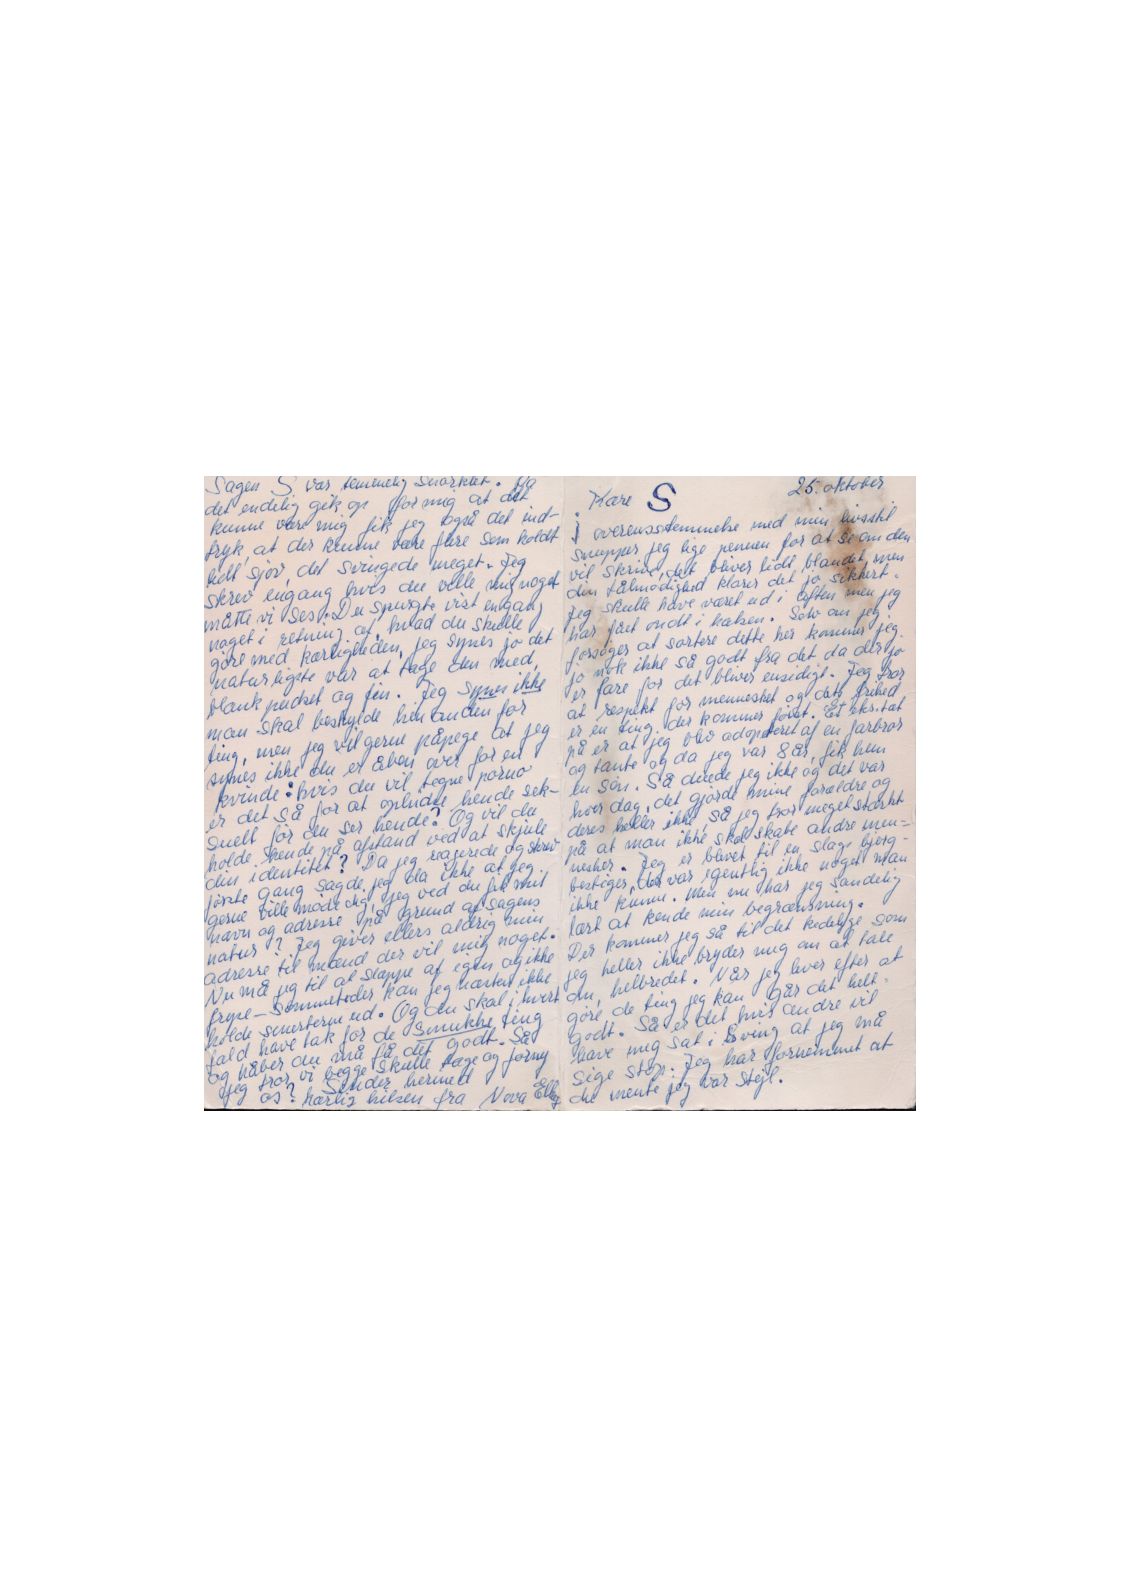 25. oktober
Kære S
I overensstemmelse med min livsstil
snupper jeg lige pennen for at se om den
vil skrive, det bliver lidt blandet men
din tålmodighed klarer det jo sikkert.
Jeg skulle have været ud i aften men jeg
har fået ondt i halsen. Selv om jeg
forsøger at sortere dette her kommer jeg
jo nok ikke så godt fra det da der jo
er fare for det bliver ensidigt. Jeg tror
at respekt for mennesket og dets frihed
er en ting der kommer först. Et
på er at jeg blev adopteret af en farbror
og tante og da jeg var 8 år, fik hun
en sön. Så duede jeg ikke og det var
hver dag, det gjorde mine forældre og
deres heller ikke, så jeg tror meget stærkt
på at man ikke skal skabe andre men-
nesker. Jeg er blevet til en slags bjerg-
bestiger, der var egentlig ikke noget man
ikke kunne. Men nu har jeg sandelig
lært at kende min begrænsning.
Der kommer jeg så til det kedelige som
jeg heller ikke bryder mig om at tale
om, helbredet. Når jeg lever efter at
göre de ting jeg kan går det helt
godt. Så er det hvis andre vil
have mig sat i sving at jeg må
sige stop: Jeg har fornemmet at
du mente jeg var stejl.
Sagen S var temmelig snørklet. Da
det endelig gik op for mig at det
kunne være mig fik jeg også det ind-
tryk, at der kunne være flere som holdt
lidt sjov, det svingede meget. Jeg
skrev engang hvis du ville mig noget
måtte vi ses. Du spurgte vist engang
noget i retning af, hvad du skulle
göre med kærligheden, jeg synes jo det
naturligste var at tage den med,
blank pudset og fin. Jeg synes ikke
man skal beskylde hinanden for
ting, men jeg vil gerne påpege at jeg
synes ikke du er åben over for en
kvinde: hvis du vil tegne porno
er det så for at ophidse hende sek-
suelt för du ser hende? Og vil du
holde hende på afstand ved at skjule
din identitet? Da jeg reagerede og skrev
förste gang sagde jeg bla ikke at jeg
gerne ville möde dig, jeg ved du fik mit
navn og adresse på grund af sagens
natur? Jeg giver ellers aldrig min
adresse til mænd der vil mig noget.
Nu må jeg til at slappe af igen og ikke
fryse - sommetider kan jeg næsten ikke
holde smerterne ud. Og du skal i hvert
fald have tak for de smukke ting
og håber du må få det godt. Så
jeg tror vi begge skulle tage og forny
os? Sender hermed
kærlig hilsen fra Nova Elley